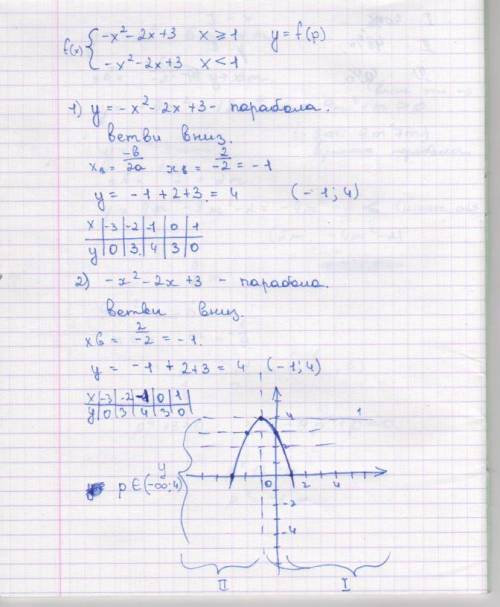 f(x) { -x² - 2x + 3   x ≥ 1   y = f(p)
-x² - 2x + 3   x < 1
1) y = -x² - 2x + 3 - парабола.
ветви вниз.
xв = -в/2a   xв = 2/-2 = -1
y = -1 + 2 + 3 = 4   (-1; 4)
x -3 -2 -1 0 1
y 0 3 4 3 0
2) -x² - 2x + 3 - парабола.
ветви вниз.
xв = 2/-2 = -1.
y = -1 + 2 + 3 = 4   (-1; 4)
x -3 -2 -1 0 1
y 0 3 4 3 0
4
1
y
p ∈ (-∞; 4)
0 2 4
-2
-4
II I